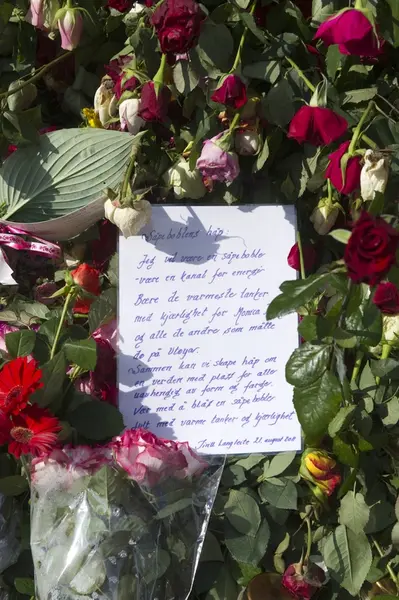 Såpeboblens håp:
Jeg vil være en såpeboble
-være en kanal for energi
Bære de varmeste tanker
og kjærligheten for Monica
og alle de andre som måtte
dø på Utøya.
Sammen kan vi skape håp om
en verden med plass for alle
uavhendig av form og farge.
Vær med å blås en såpeboble
full med varme tanker og kjærlighet
21. august 2011